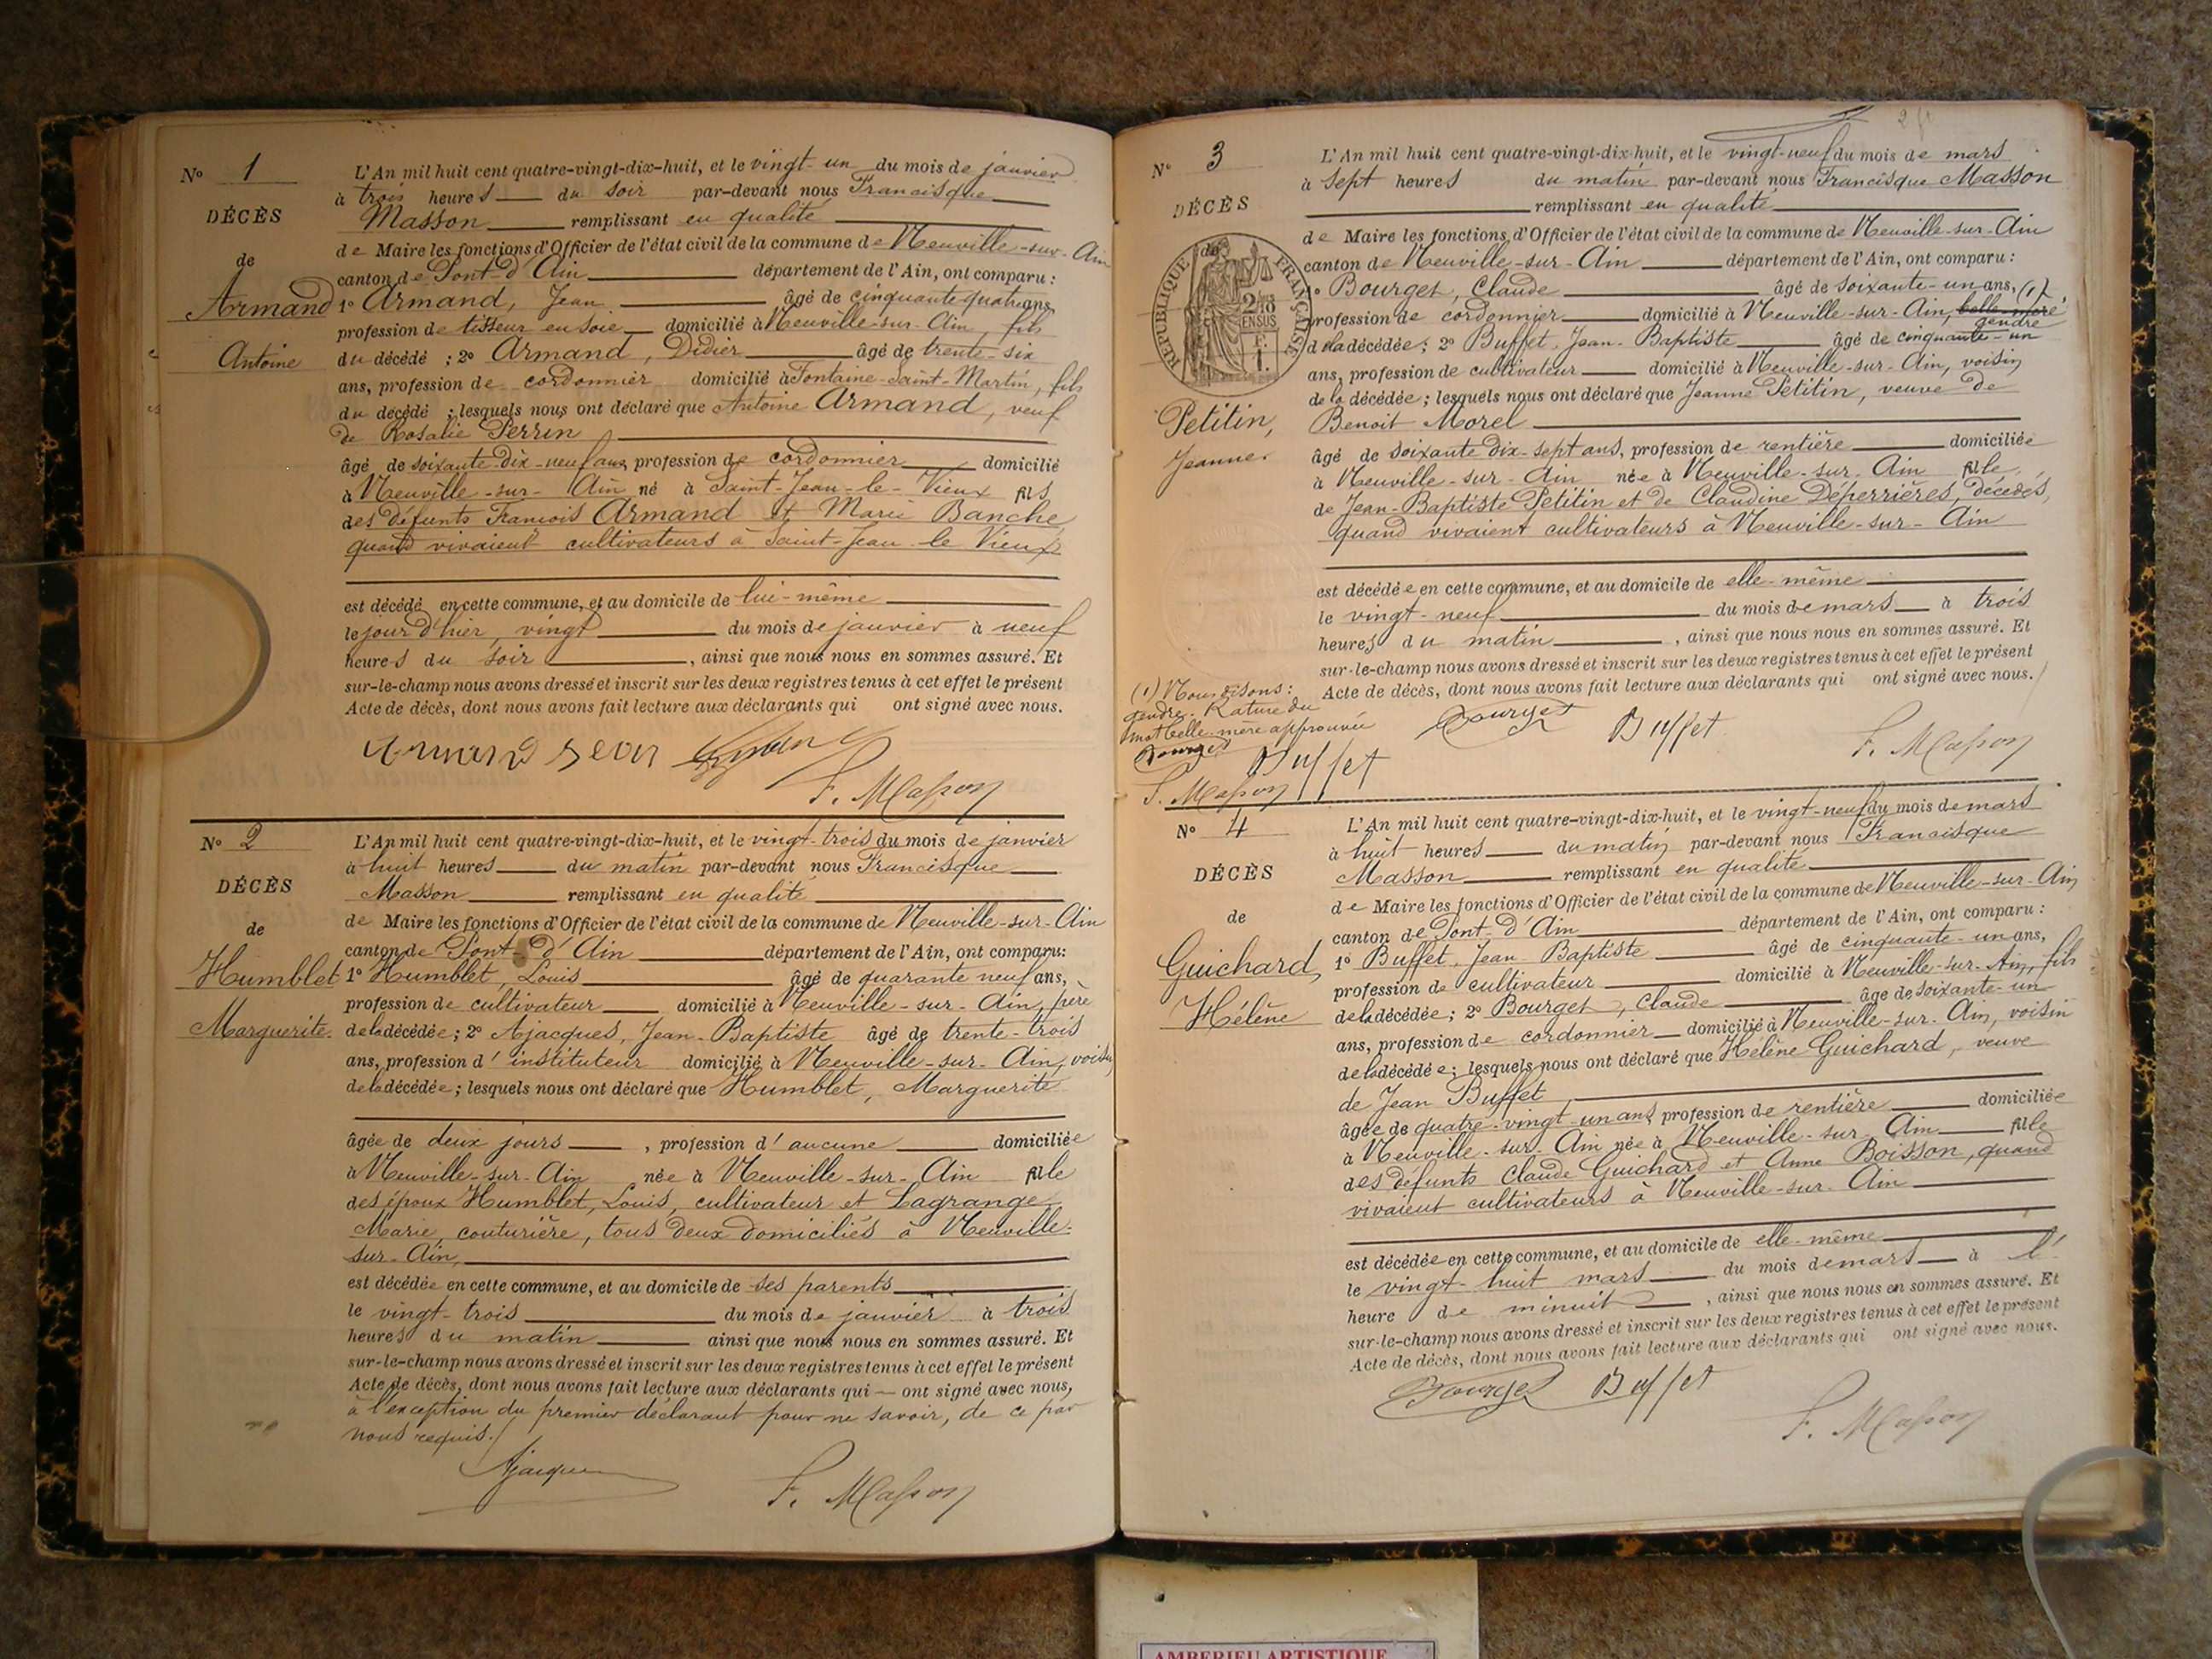 N° 1
DÉCÈS
de
Armand
Antoine
L'An mil huit cent quatre-vingt-dix-huit, et le vingt-un du mois de janvier
à trois heures du soir par-devant nous Francisque
Masson remplissant en qualité
de Maire les fonctions d'Officier de l'état civil de la commune de Neuville-sur-Ain
canton de Pont-d'Ain département de l'Ain, ont comparu :
1° Armand, Jean âgé de cinquante quatre ans,
profession de tisseur en soie domicilié à Neuville-sur-Ain, fils
du décédé ; 2° Armand, Didier âgé de trente-six
ans, profession de cordonnier domicilié à Fontaine-Saint-Martin, fils
du décédé ; lesquels nous ont déclaré que Antoine Armand, veuf
de Rosalie Perrin
âgé de soixante-dix-neuf ans, profession de cordonnier domicilié
à Neuville-sur-Ain né à Saint-Jean-le-Vieux fils
des défunts François Armand et Marie Banche
quand vivaient cultivateurs à Saint-Jean-le Vieux
est décédé en cette commune, et au domicile de lui-même
le jour d'hier, vingt du mois de janvier à neuf
heures du soir, ainsi que nous nous en sommes assuré. Et
sur-le-champ nous avons dressé et inscrit sur les deux registres tenus à cet effet le présent
Acte de décès, dont nous avons fait lecture aux déclarants qui ont signé avec nous.
Armand Jean Armand
F. Masson
N° 2
DÉCÈS
de
Humblet
Marguerite.
L'An mil huit cent quatre-vingt-dix-huit, et le vingt-trois du mois de janvier
à huit heures du matin par-devant nous Francisque
Masson remplissant en qualité
de Maire les fonctions d'Officier de l'état civil de la commune de Neuville-sur-Ain
canton de Pont-d'Ain département de l'Ain, ont comparu:
1° Humblet, Louis âgé de quarante neuf ans,
profession de cultivateur domicilié à Neuville-sur-Ain, père
de la décédée ; 2° Ajacques, Jean-Baptiste âgé de trente-trois
ans, profession d'instituteur domicilié à Neuville-sur-Ain, voisin
de la décédée ; lesquels nous ont déclaré que Humblet, Marguerite
âgée de deux jours, profession d'aucune domiciliée
à Neuville-sur-Ain née à Neuville-sur-Ain fille
des époux Humblet, Louis, cultivateur et Lagrange
Marie, couturière, tous deux domiciliés à Neuville-
sur-Ain,
est décédée en cette commune, et au domicile de ses parents
le vingt-trois du mois de janvier à trois
heures du matin ainsi que nous nous en sommes assuré. Et
sur-le-champ nous avons dressé et inscrit sur les deux registres tenus à cet effet le présent
Acte de décès, dont nous avons fait lecture aux déclarants qui — ont signé avec nous,
à l'exception du premier déclarant pour ne savoir, de ce par
nous requis./
Ajacques
F. Masson
N° 3
DÉCÈS
de
RÉPUBLIQUE FRANÇAISE
Petitin,
Jeanne.
L'An mil huit cent quatre-vingt-dix-huit, et le vingt-neuf du mois de mars
à sept heures du matin par-devant nous Francisque Masson
remplissant en qualité
de Maire les fonctions d'Officier de l'état civil de la commune de Neuville-sur-Ain
canton de Neuville-sur-Ain département de l'Ain, ont comparu :
1° Bourget, Claude âgé de soixante-un ans, (1)
profession de cordonnier domicilié à Neuville-sur-Ain, belle-mère
gendre
de la décédée ; 2° Buffet, Jean-Baptiste âgé de cinquante-un
ans, profession de cultivateur domicilié à Neuville-sur-Ain, voisin
de la décédée ; lesquels nous ont déclaré que Jeanne Petitin, veuve de
Benoit Morel
âgé de soixante dix-sept ans, profession de rentière domiciliée
à Neuville-sur-Ain née à Neuville-sur-Ain fille
de Jean-Baptiste Petitin et de Claudine Déperrières, décédés,
quand vivaient cultivateurs à Neuville-sur-Ain
est décédée en cette commune, et au domicile de elle-même
le vingt-neuf du mois de mars à trois
heures du matin, ainsi que nous nous en sommes assuré. Et
sur-le-champ nous avons dressé et inscrit sur les deux registres tenus à cet effet le présent
Acte de décès, dont nous avons fait lecture aux déclarants qui ont signé avec nous./
(1) Nous disons :
gendre. Rature du
mot belle-mère approuvée
Bourget Buffet
F. Masson
Bourget Buffet
F. Masson
N° 4
DÉCÈS
de
Guichard,
Hélène
L'An mil huit cent quatre-vingt-dix-huit, et le vingt-neuf du mois de mars
à huit heures du matin par-devant nous Francisque
Masson remplissant en qualité
de Maire les fonctions d'Officier de l'état civil de la commune de Neuville-sur-Ain
canton de Pont-d'Ain département de l'Ain, ont comparu :
1° Buffet, Jean-Baptiste âgé de cinquante-un ans,
profession de cultivateur domicilié à Neuville-sur-Ain, fils
de la décédée ; 2° Bourget, Claude âgé de soixante-un
ans, profession de cordonnier domicilié à Neuville-sur-Ain, voisin
de la décédée ; lesquels nous ont déclaré que Hélène Guichard, veuve
de Jean Buffet,
âgée de quatre-vingt-un ans, profession de rentière domiciliée
à Neuville-sur-Ain née à Neuville-sur-Ain fille
des défunts Claude Guichard et Anne Boisson, quand
vivaient cultivateurs à Neuville-sur-Ain
est décédée en cette commune, et au domicile de elle-même
le vingt-huit mars du mois de mars à l'
heure de minuit, ainsi que nous nous en sommes assuré. Et
sur-le-champ nous avons dressé et inscrit sur les deux registres tenus à cet effet le présent
Acte de décès, dont nous avons fait lecture aux déclarants qui ont signé avec nous.
Bourget Buffet
F. Masson
AMBERIEU ARTISTIQUE